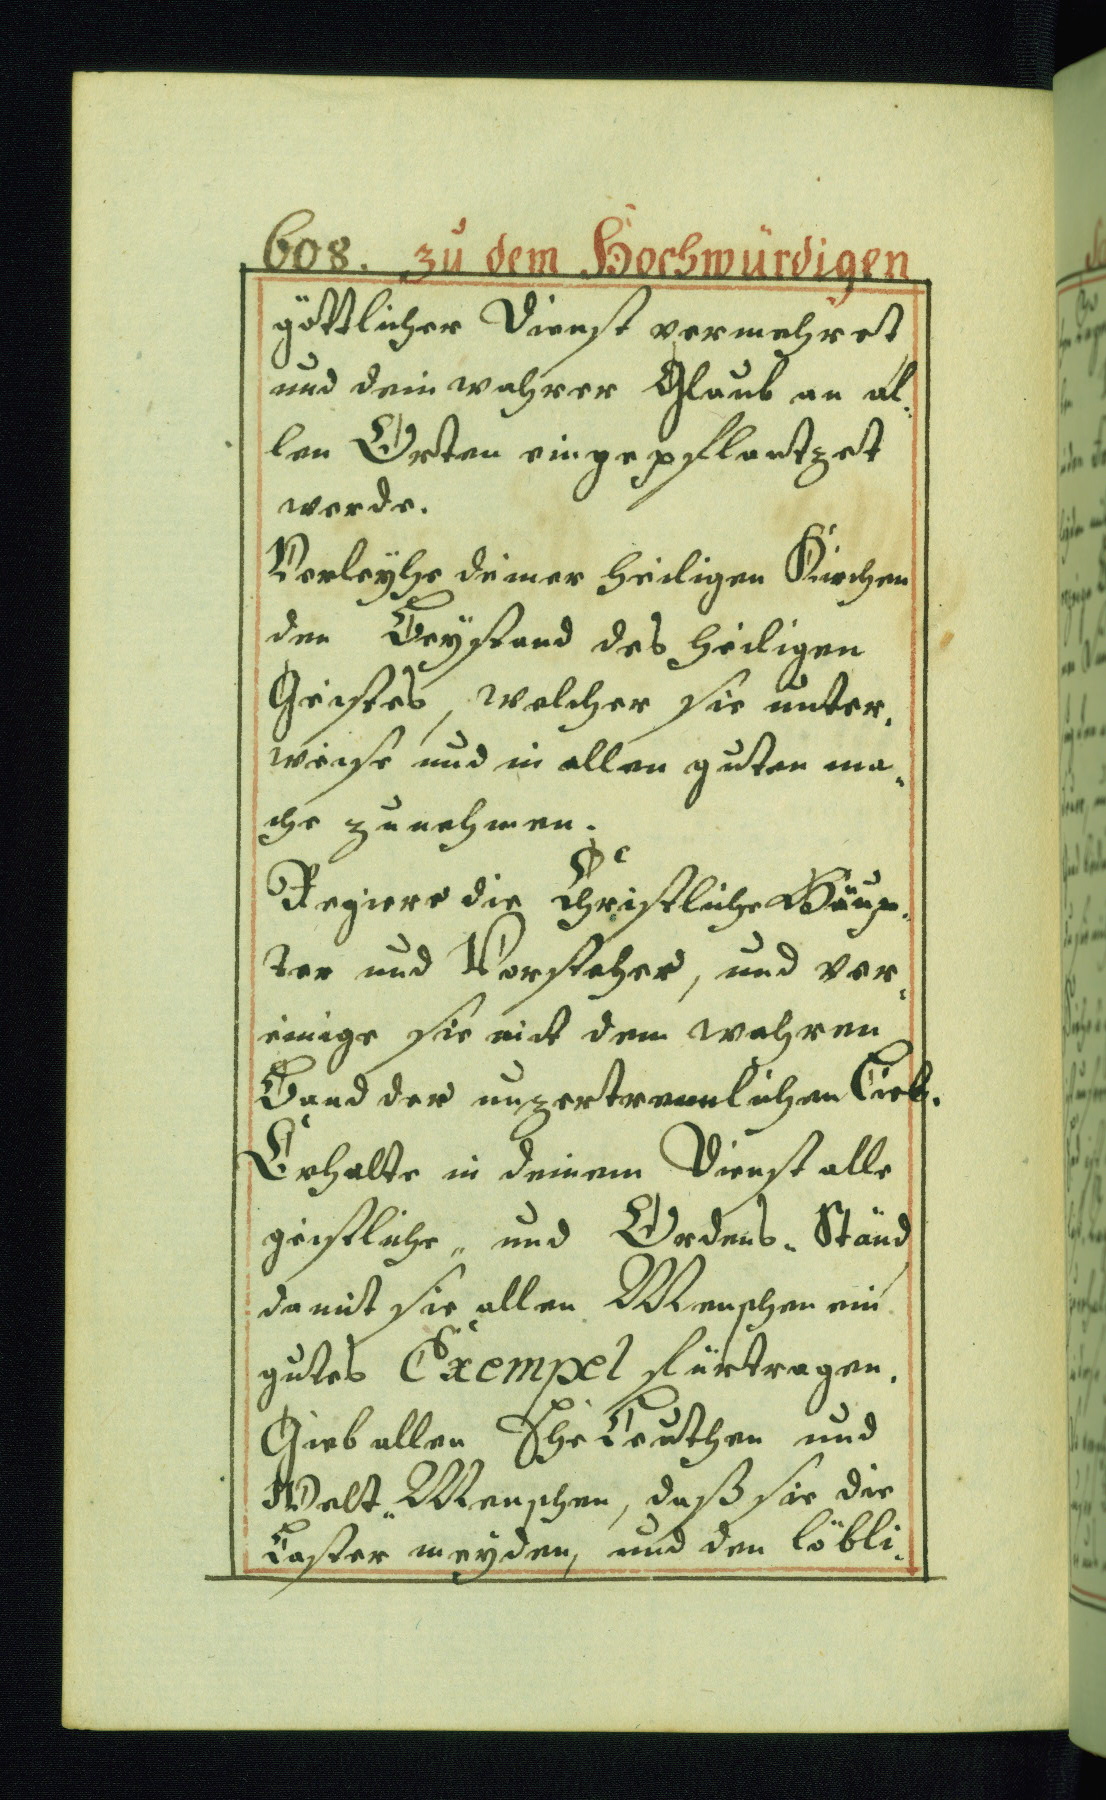 608. zu dem Hochwürdigen
göttlicher Dienst vermehret
und dein wahrer Glaub an al-
len Orten eingepflantzet
werde.
Verleyhe deiner heiligen Kirchen
den Beystand des heiligen
Geistes, welcher sie unter-
weise und in allen guten ma-
che zunehmen.
Regiere die Christliche Häup-
ter und Vorsteher, und ver-
einige sie mit dem wahren
Band der unzertrennlichen Lieb.
Erhalte in deinem Dienst alle
geistliche- und Ordens-Ständ
damit sie allen Menschen ein
gutes Exempel fürtragen.
Gieb allen Ehe Leuthen und
Welt-Menschen, daß sie die
Laster meyden, und den löbli-